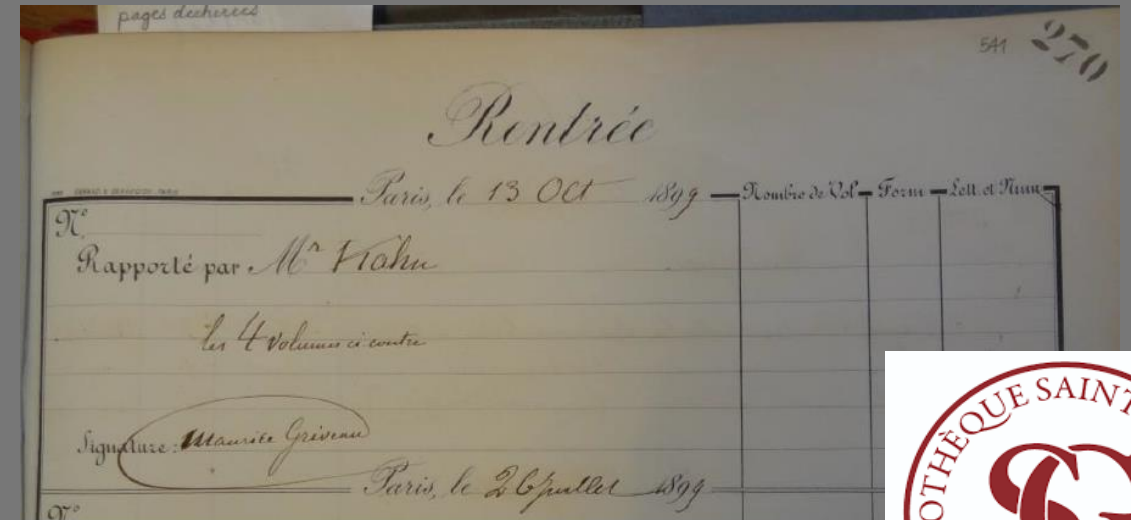 pages dechirées
541 270
Rentrée
Paris, le 13 Oct 1899 Nombre de Vol Form Lett. et Num
N°
Rapporté par Mr Kahn
les 4 volumes ci contre
Signature: Maurice Griveau
Paris, le 26 juillet 1899
N°
OTHÈQUE SAINT